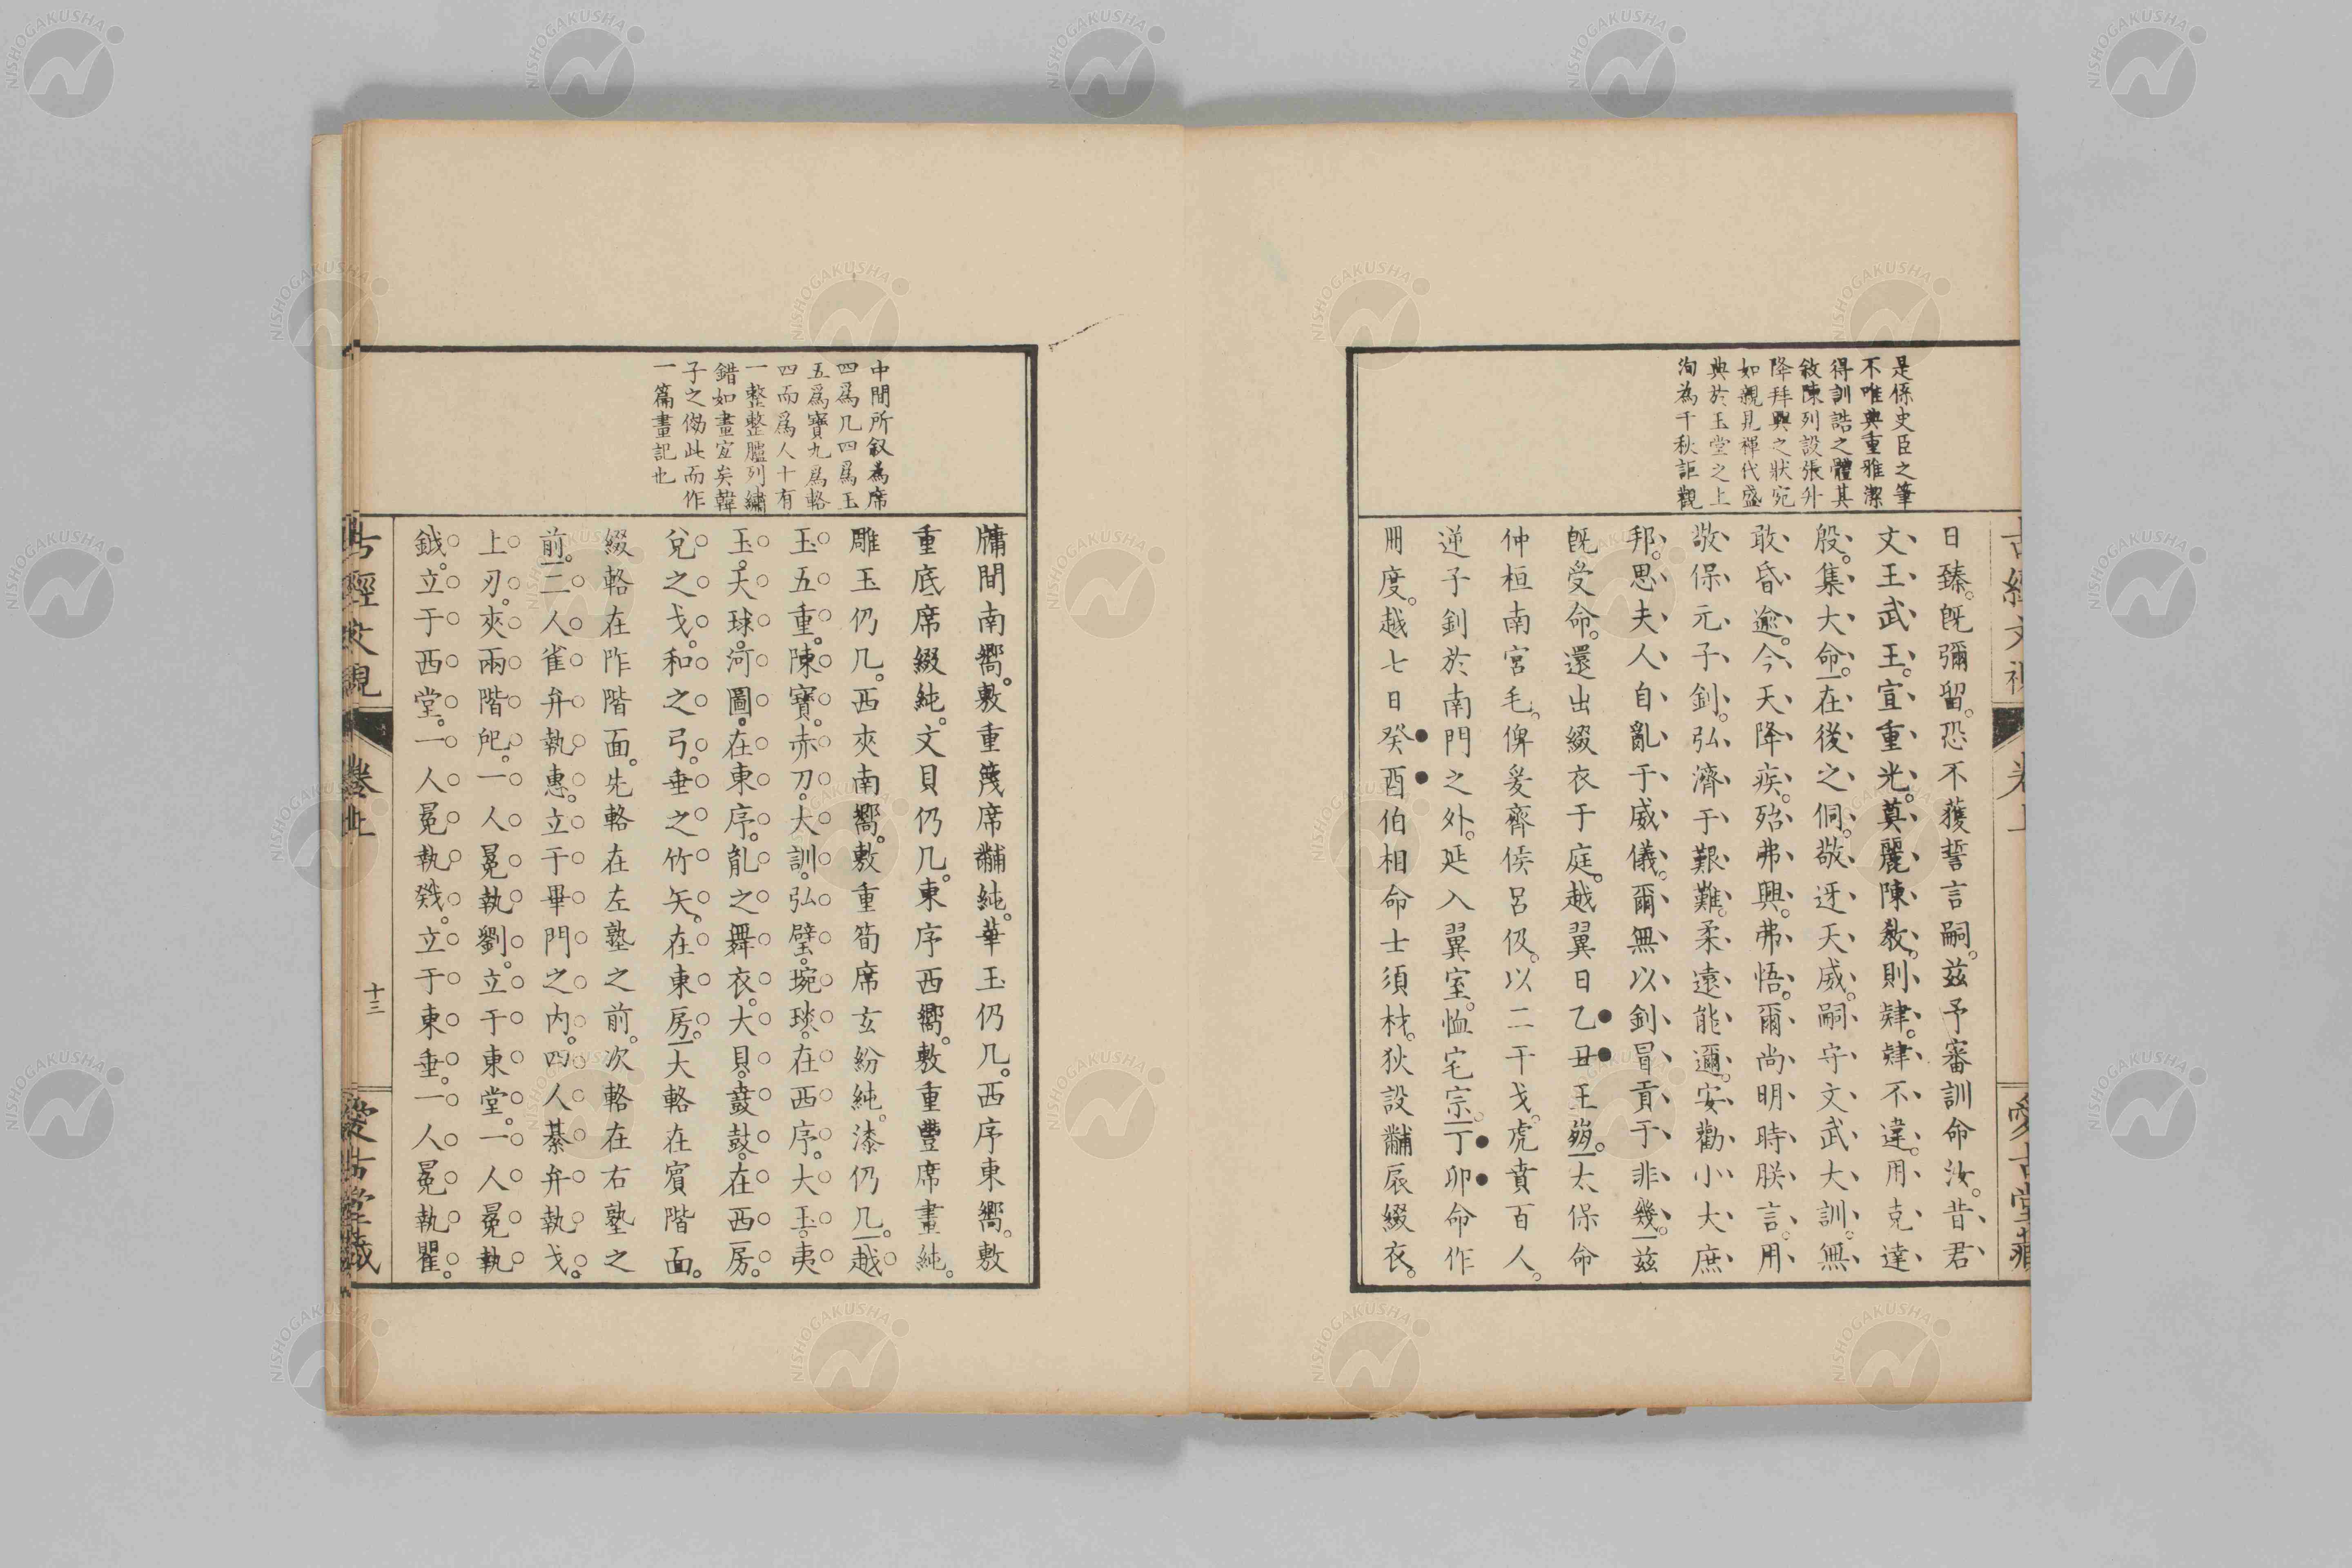 是係史臣之筆
不唯典重雅潔
得訓誥之體其
敘陳列設張升
降拜興之狀宛
如親見禪代盛
典於玉堂之上
洵為千秋詎觀
日臻。旣彌留。恐不獲誓言嗣。茲予審訓命汝。昔君
文王武王。宣重光。奠麗陳敎。則肄。肄不違。用克達
殷。集大命。在後之侗。敬迓天威。嗣守文武大訓。無
敢昏逾。今天降疾。殆弗興。弗悟。爾尚明時朕言。用
敬保元子釗。弘濟于艱難。柔遠能邇。安勸小大庶
邦。思夫人自亂于威儀。爾無以釗冒貢于非幾。茲
旣受命。還出綴衣于庭。越翼日乙丑王崩。太保命
仲桓南宮毛。俾爰齊侯呂伋。以二干戈。虎賁百人。
逆子釗於南門之外。延入翼室。恤宅宗。丁卯命作
冊度。越七日癸酉伯相命士須材。狄設黼扆綴衣。
中間所敘為席
四爲几四爲玉
五爲寶九爲輅
四而爲人十有
一整整臚列繡
錯如畫宜矣韓
子之倣此而作
一篇畫記也
牖間南嚮。敷重篾席黼純。華玉仍几。西序東嚮。敷
重底席綴純。文貝仍几。東序西嚮。敷重豐席畫純。
雕玉仍几。西夾南嚮。敷重筍席玄紛純。漆仍几。越
玉五重。陳寶。赤刀。大訓。弘璧。琬琰。在西序。大玉。夷
玉。天球。河圖。在東序。胤之舞衣。大貝。鼖鼓。在西房。
兌之戈。和之弓。垂之竹矢。在東房。大輅在賓階面。
綴輅在阼階面。先輅在左塾之前。次輅在右塾之
前。二人雀弁執惠。立于畢門之內。四人綦弁執戈。
上刃。夾兩階戺。一人冕執劉。立于東堂。一人冕執
鉞。立于西堂。一人冕執戣。立于東垂。一人冕執瞿。
十三